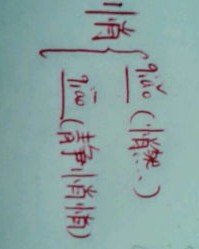 悄
qiǎo (悄然...)
qiāo (静悄悄)